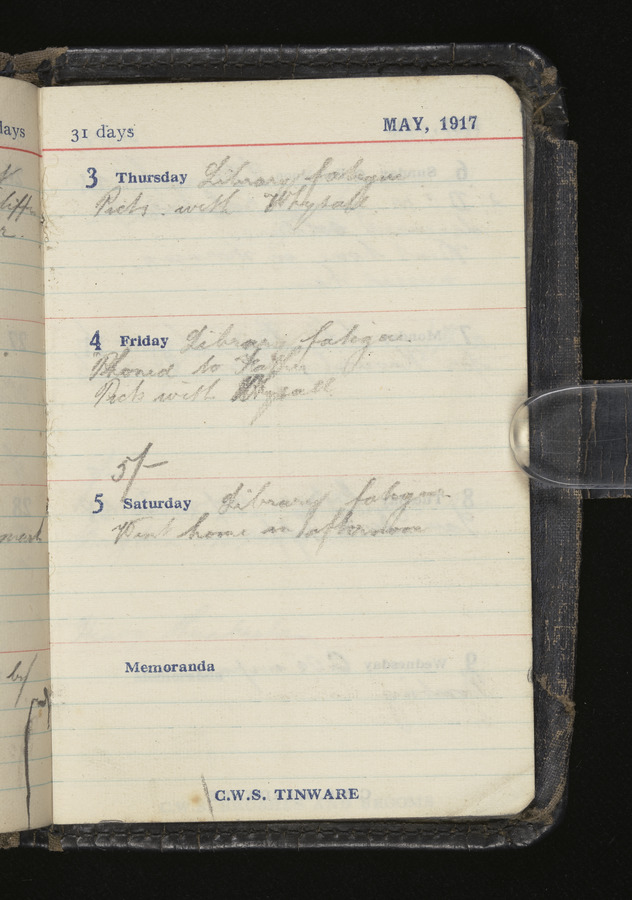 days
31 days
MAY, 1917
3 Thursday Library fatigue
Picts. with Whysall
4 Friday Library fatigue
Phoned to Father
Picts with Whysall
5/-
5 Saturday Library fatigue
Went home in afternoon
Memoranda
C.W.S. TINWARE